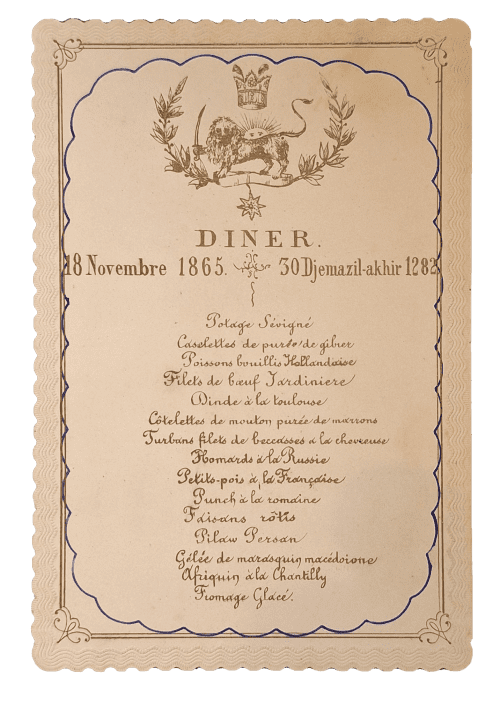 DINER.
18 Novembre 1865. 30 Djemazil-akhir 1282
Potage Sévigné
Caselettes de purée de gibier
Poissons bouillis Hollandaise
Filets de bœuf Jardiniere
Dinde à la toulouse
Côtelettes de mouton purée de marrons
Turbans filets de beccasses à la chevreuse
Homards à la Russie
Petits-pois à la Française
Punch à la romaine
Faisans rôtis
Pilaw Persan
Gélée de marasquin macédoione
Afriquin à la Chantilly
Fromage Glacé.